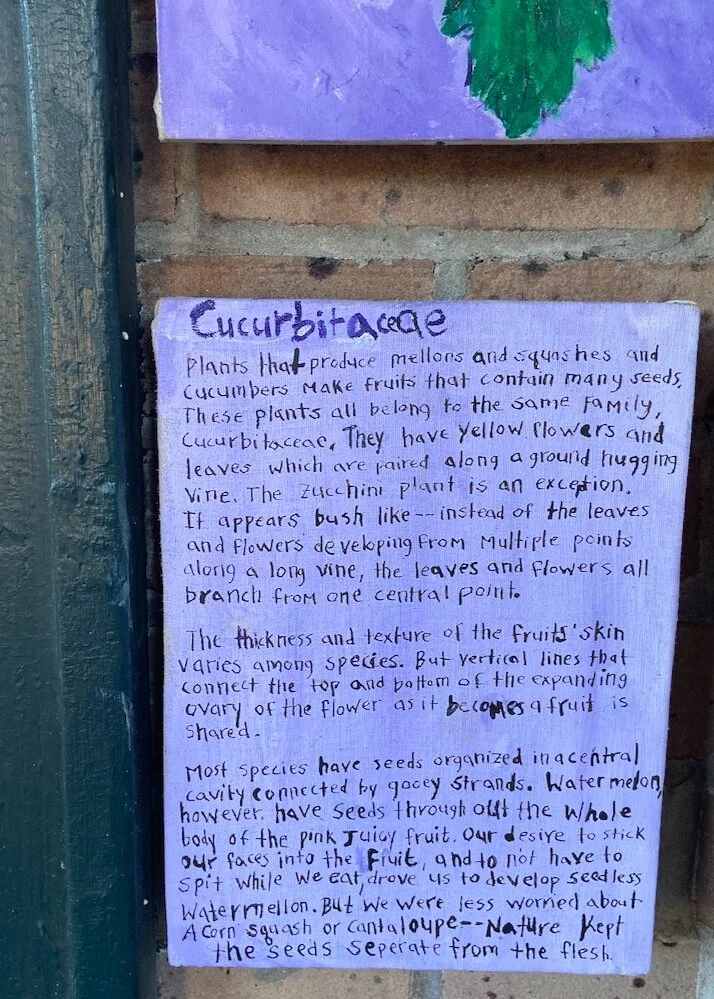 Cucurbitaceae
Plants that produce mellons and squashes and
cucumbers make fruits that contain many seeds.
These plants all belong to the same family,
Cucurbitaceae. They have yellow flowers and
leaves which are paired along a ground hugging
vine. The zucchini plant is an exception.
It appears bush like--instead of the leaves
and flowers developing from multiple points
along a long vine, the leaves and flowers all
branch from one central point.
The thickness and texture of the fruits' skin
varies among species. But vertical lines that
connect the top and bottom of the expanding
ovary of the flower as it becomes a fruit is
shared.
Most species have seeds organized in a central
cavity connected by gooey strands. Water melon,
however, have seeds through out the whole
body of the pink juicy fruit. Our desire to stick
our faces into the fruit, and to not have to
spit while we eat, drove us to develop seedless
watermellon. But we were less worried about
Acorn squash or cantaloupe--Nature kept
the seeds seperate from the flesh.